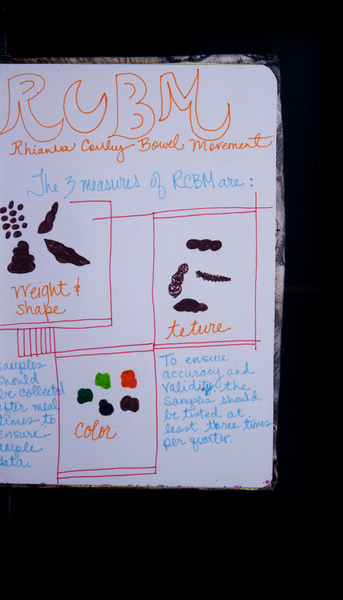 RCBM
Rhianna Couley Bowel Movement
The 3 measures of RCBM are:
Weight &
shape
teture
samples
should
be collected
after meal
times to
ensure
ample
data.
color
To ensure
accuracy and
validity, the
samples should
be tested at
least three times
per quarter.